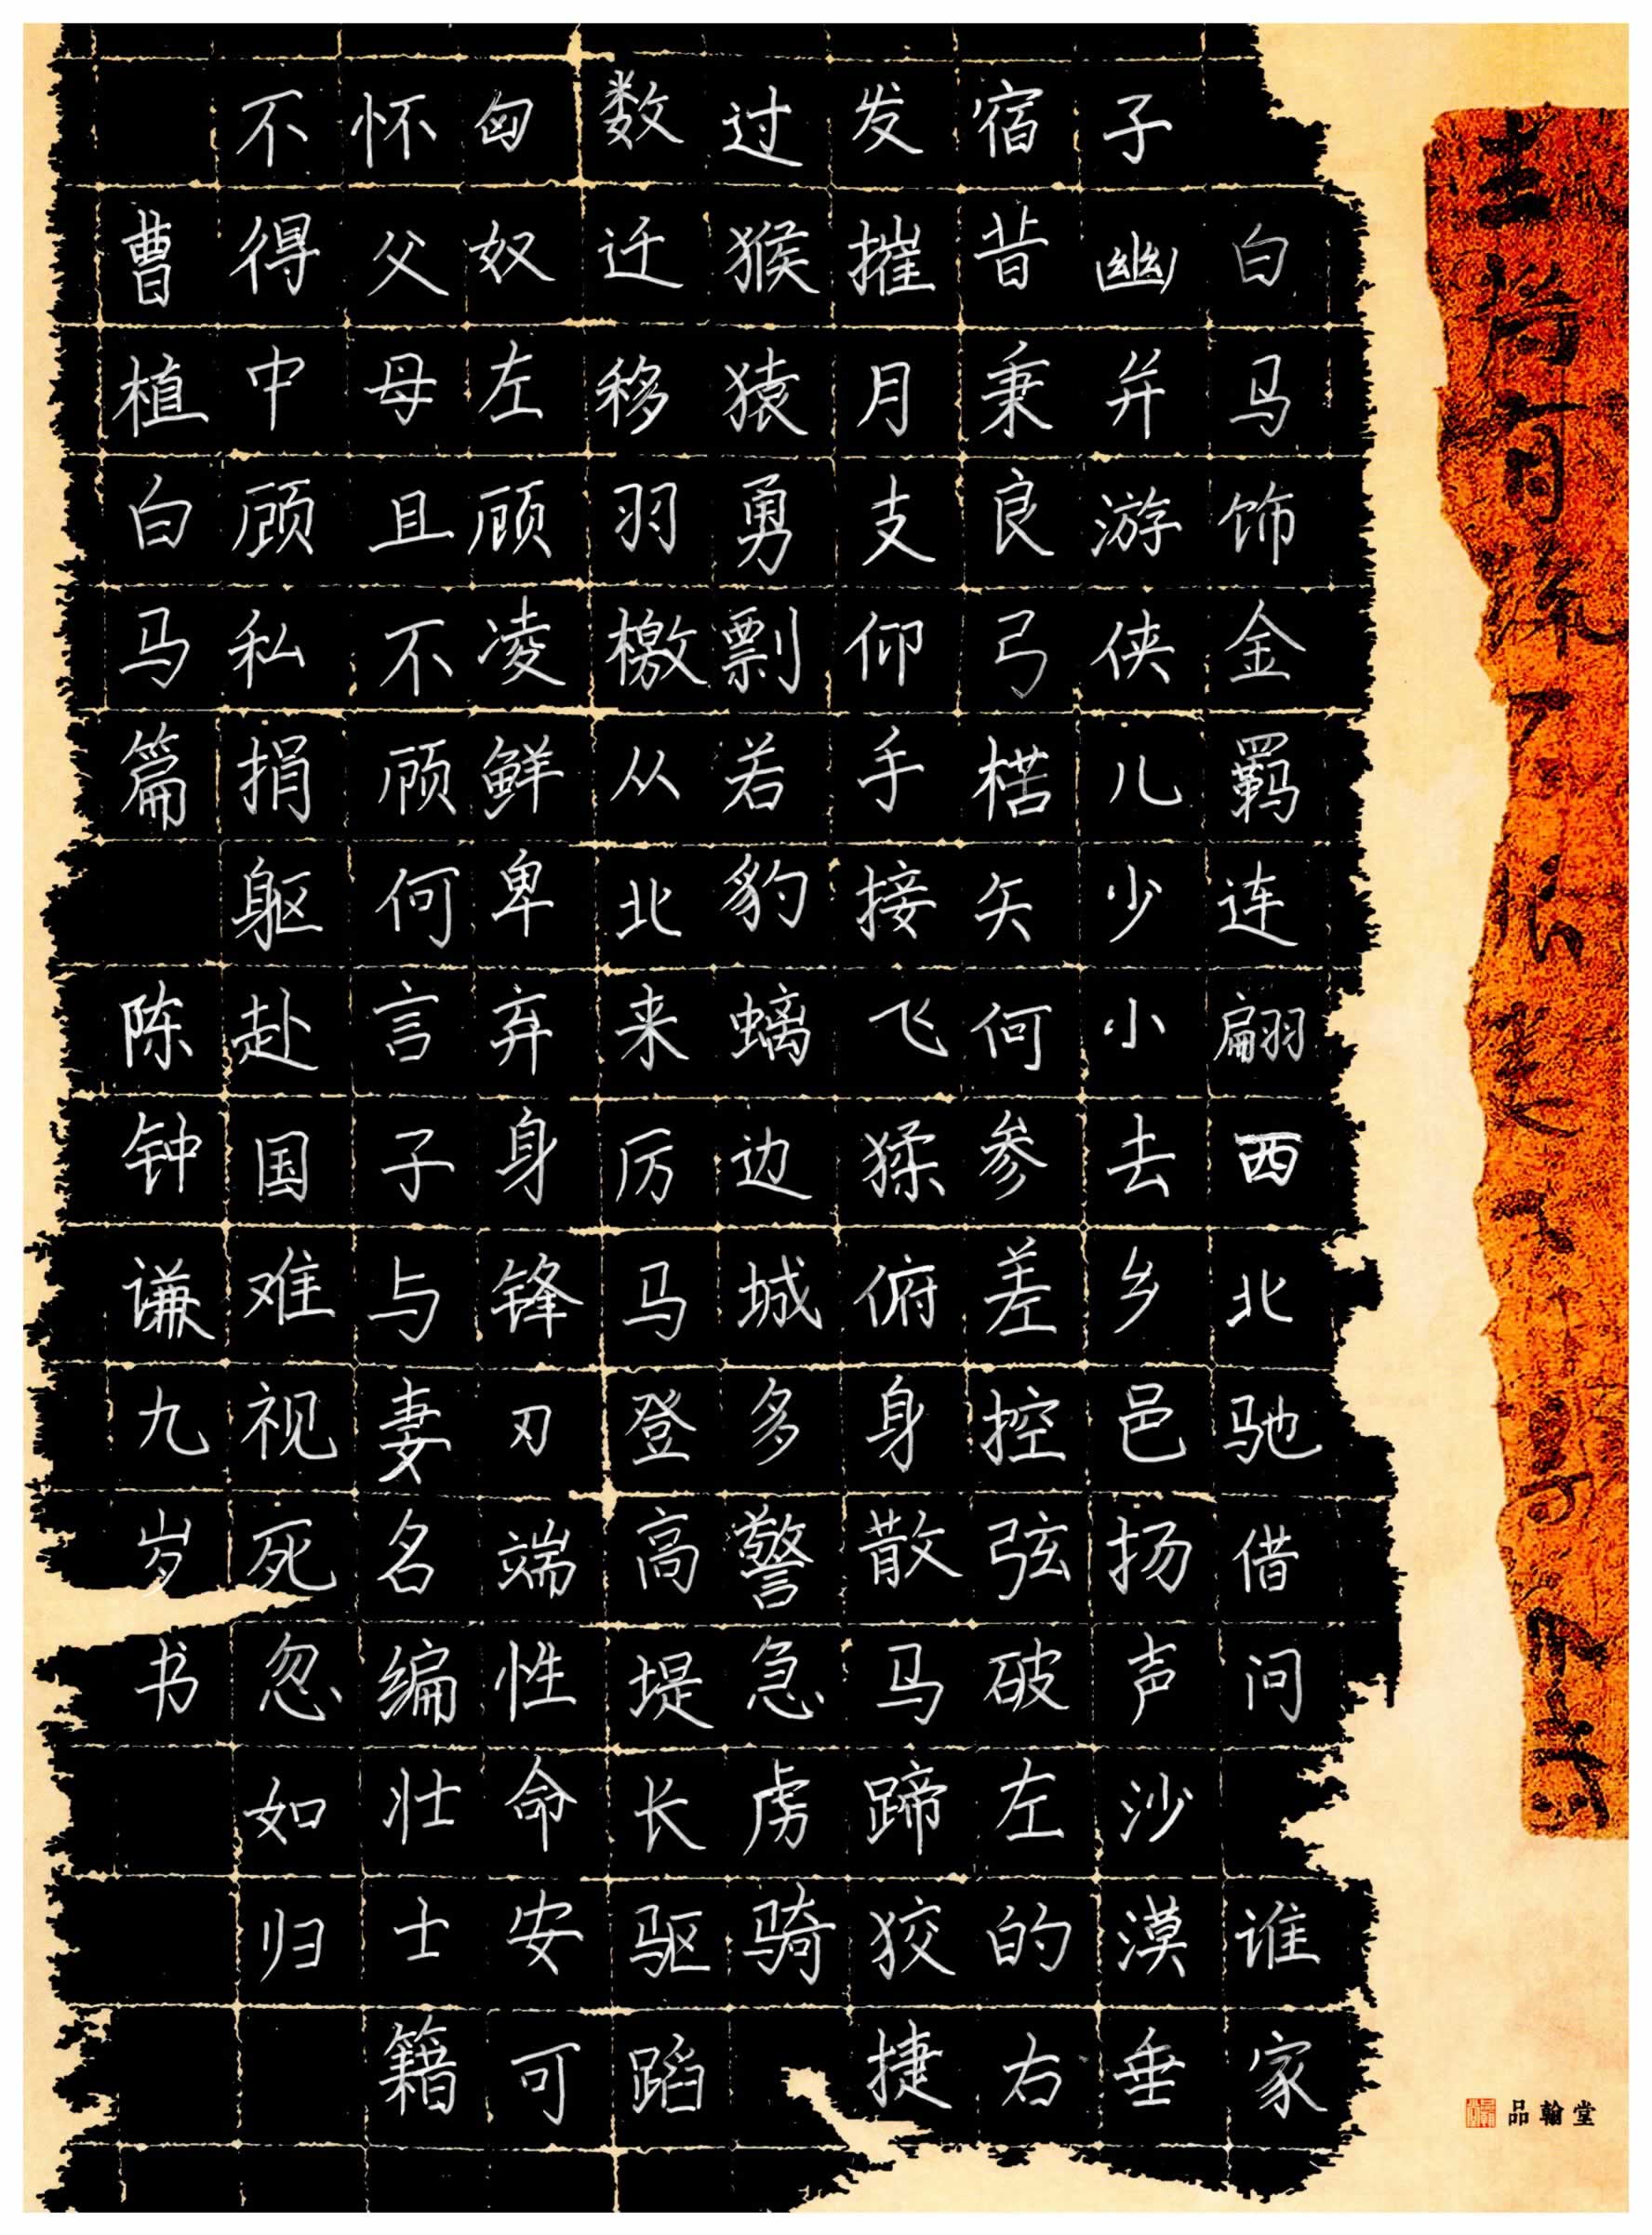 白马饰金羁连翩西北驰借问谁家
子幽并游侠儿少小去乡邑扬声沙漠垂
宿昔秉良弓楛矢何参差控弦破左的右
发摧月支仰手接飞猱俯身散马蹄狡捷
过猴猿勇剽若豹螭边城多警急虏骑
数迁移羽檄从北来厉马登高堤长驱蹈
匈奴左顾凌鲜卑弃身锋刃端性命安可
怀父母且不顾何言子与妻名编壮士籍
不得中顾私捐躯赴国难视死忽如归
曹植白马篇 陈钟谦九岁书
品翰堂